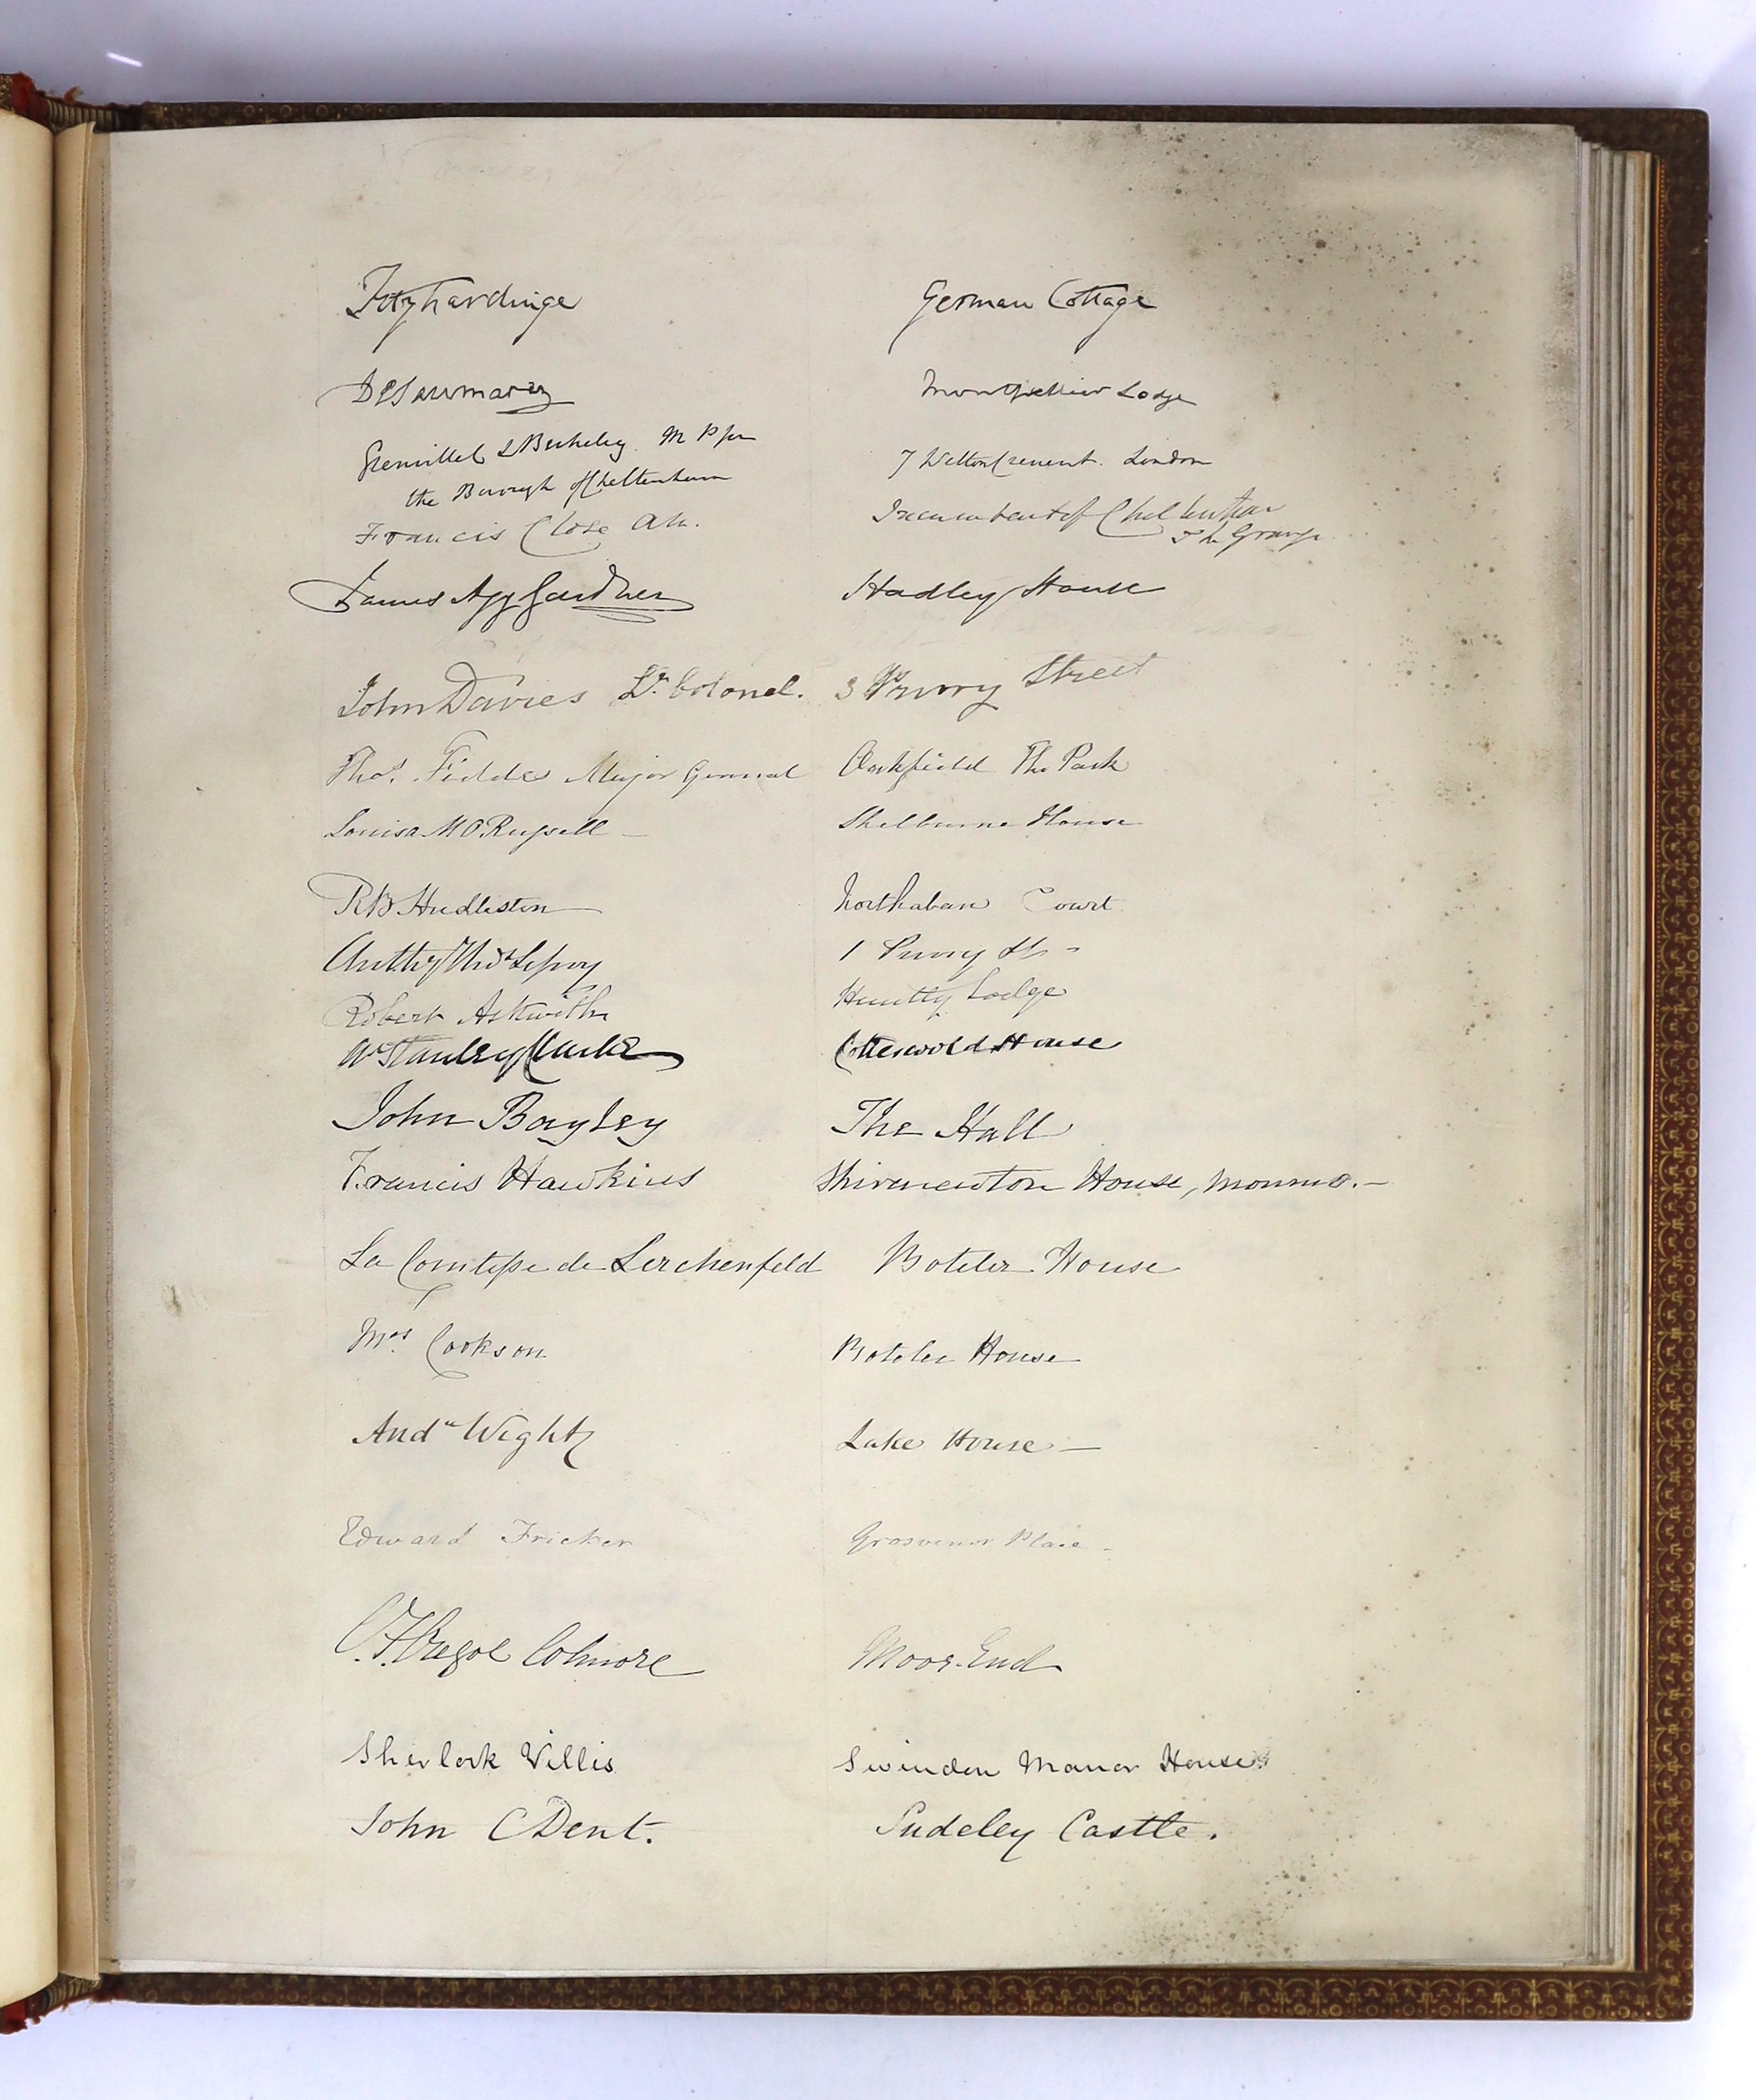 Fitzhardinge German Cottage
De Saumarez Montpellier Lodge
Grenville L Berkeley M P for
the Borough of Cheltenham 7 Wilton Crescent. London
Francis Close AM. Incumbent of Cheltenham
The Grange
James Agg Gardner Hadley House
John Davies Lt. Colonel. 3 Priory Street
Thos. Fiddes Major General Oakfield The Park
Louisa M O Russell Shelburne House
R B Hudleston Court
Anthy Thos Lefroy 1 Priory St
Robert Askwith Huntly Lodge
Wm Stanley Clarke Cotteswold House
John Bayley The Hall
Francis Hawkins Shirenewton House, Monmo.
La Comtesse de Lerchenfeld Boteler House
Mrs. Cookson Boteler House
Andw Wight Lake House
Edward Fricker Grosvenor Place
C. F. Cregoe Colmore Moor-End
Sherlock Willis Swindon Manor House
John C Dent. Sudeley Castle.